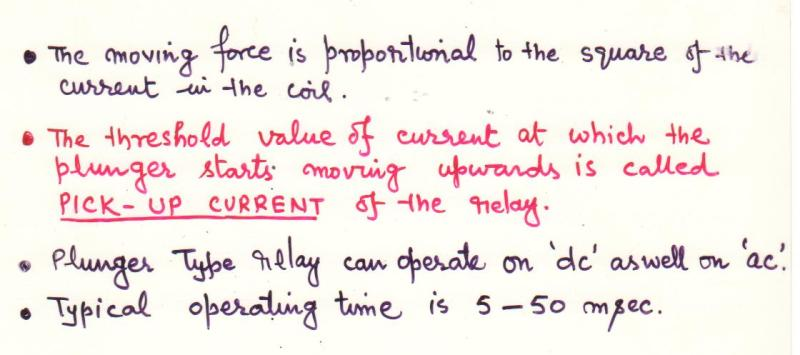 • The moving force is proportional to the square of the
current in the coil.
• The threshold value of current at which the
plunger starts moving upwards is called
PICK-UP CURRENT of the relay.
• Plunger Type relay can operate on 'dc' aswell on 'ac'.
• Typical operating time is 5 – 50 msec.